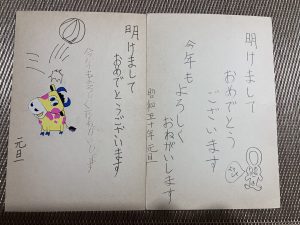 明けまして
おめでとう
ございます
今年も
よろしく
おねがいします
昭和五十年 元旦
明けまして
おめでとうございます
今年もよろしくおねがいします
元旦